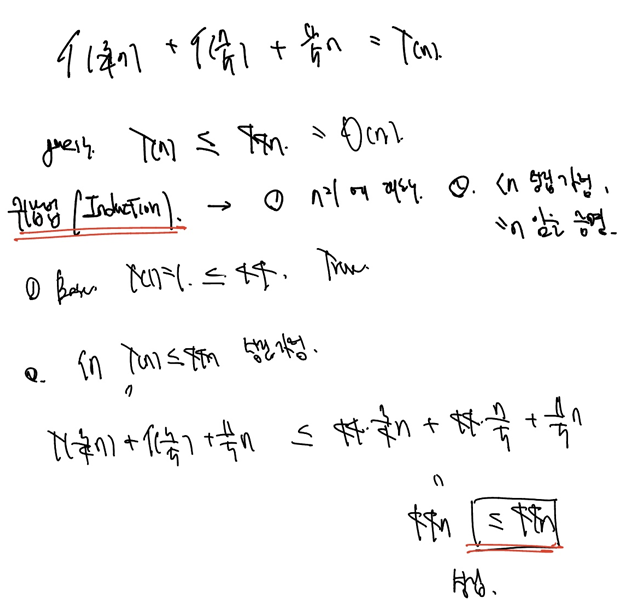 T(3/4 n) + T(n/5) + 11/5 n = T(n).
guess. T(n) ≤ 44n. = O(n).
귀납법 (Induction). → ① n=1 에 대해. ②. <n 성립가정,
=n 임을 증명.
① Base. T(1)=1. ≤ 44. True.
②. <n T(n) ≤ 44n 성립가정.
T(3/4 n) + T(n/5) + 11/5 n ≤ 44·3/4 n + 44·n/5 + 11/5 n
44n ≤ 44n
성립.